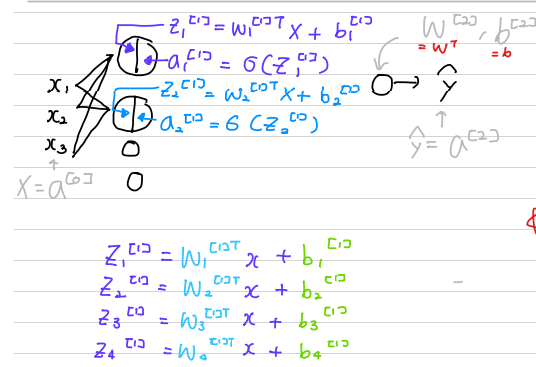 z₁^[1] = w₁^[1]T X + b₁^[1]
a₁^[1] = σ(z₁^[1])
z₂^[1] = w₂^[1]T X + b₂^[1]
a₂^[1] = σ(z₂^[1])
x₁
x₂
x₃
X = a^[0]
W^[2], b^[2]
= wᵀ = b
ŷ
ŷ = a^[2]
z₁^[1] = W₁^[1]T x + b₁^[1]
z₂^[1] = W₂^[1]T x + b₂^[1]
z₃^[1] = W₃^[1]T x + b₃^[1]
z₄^[1] = W₄^[1]T x + b₄^[1]